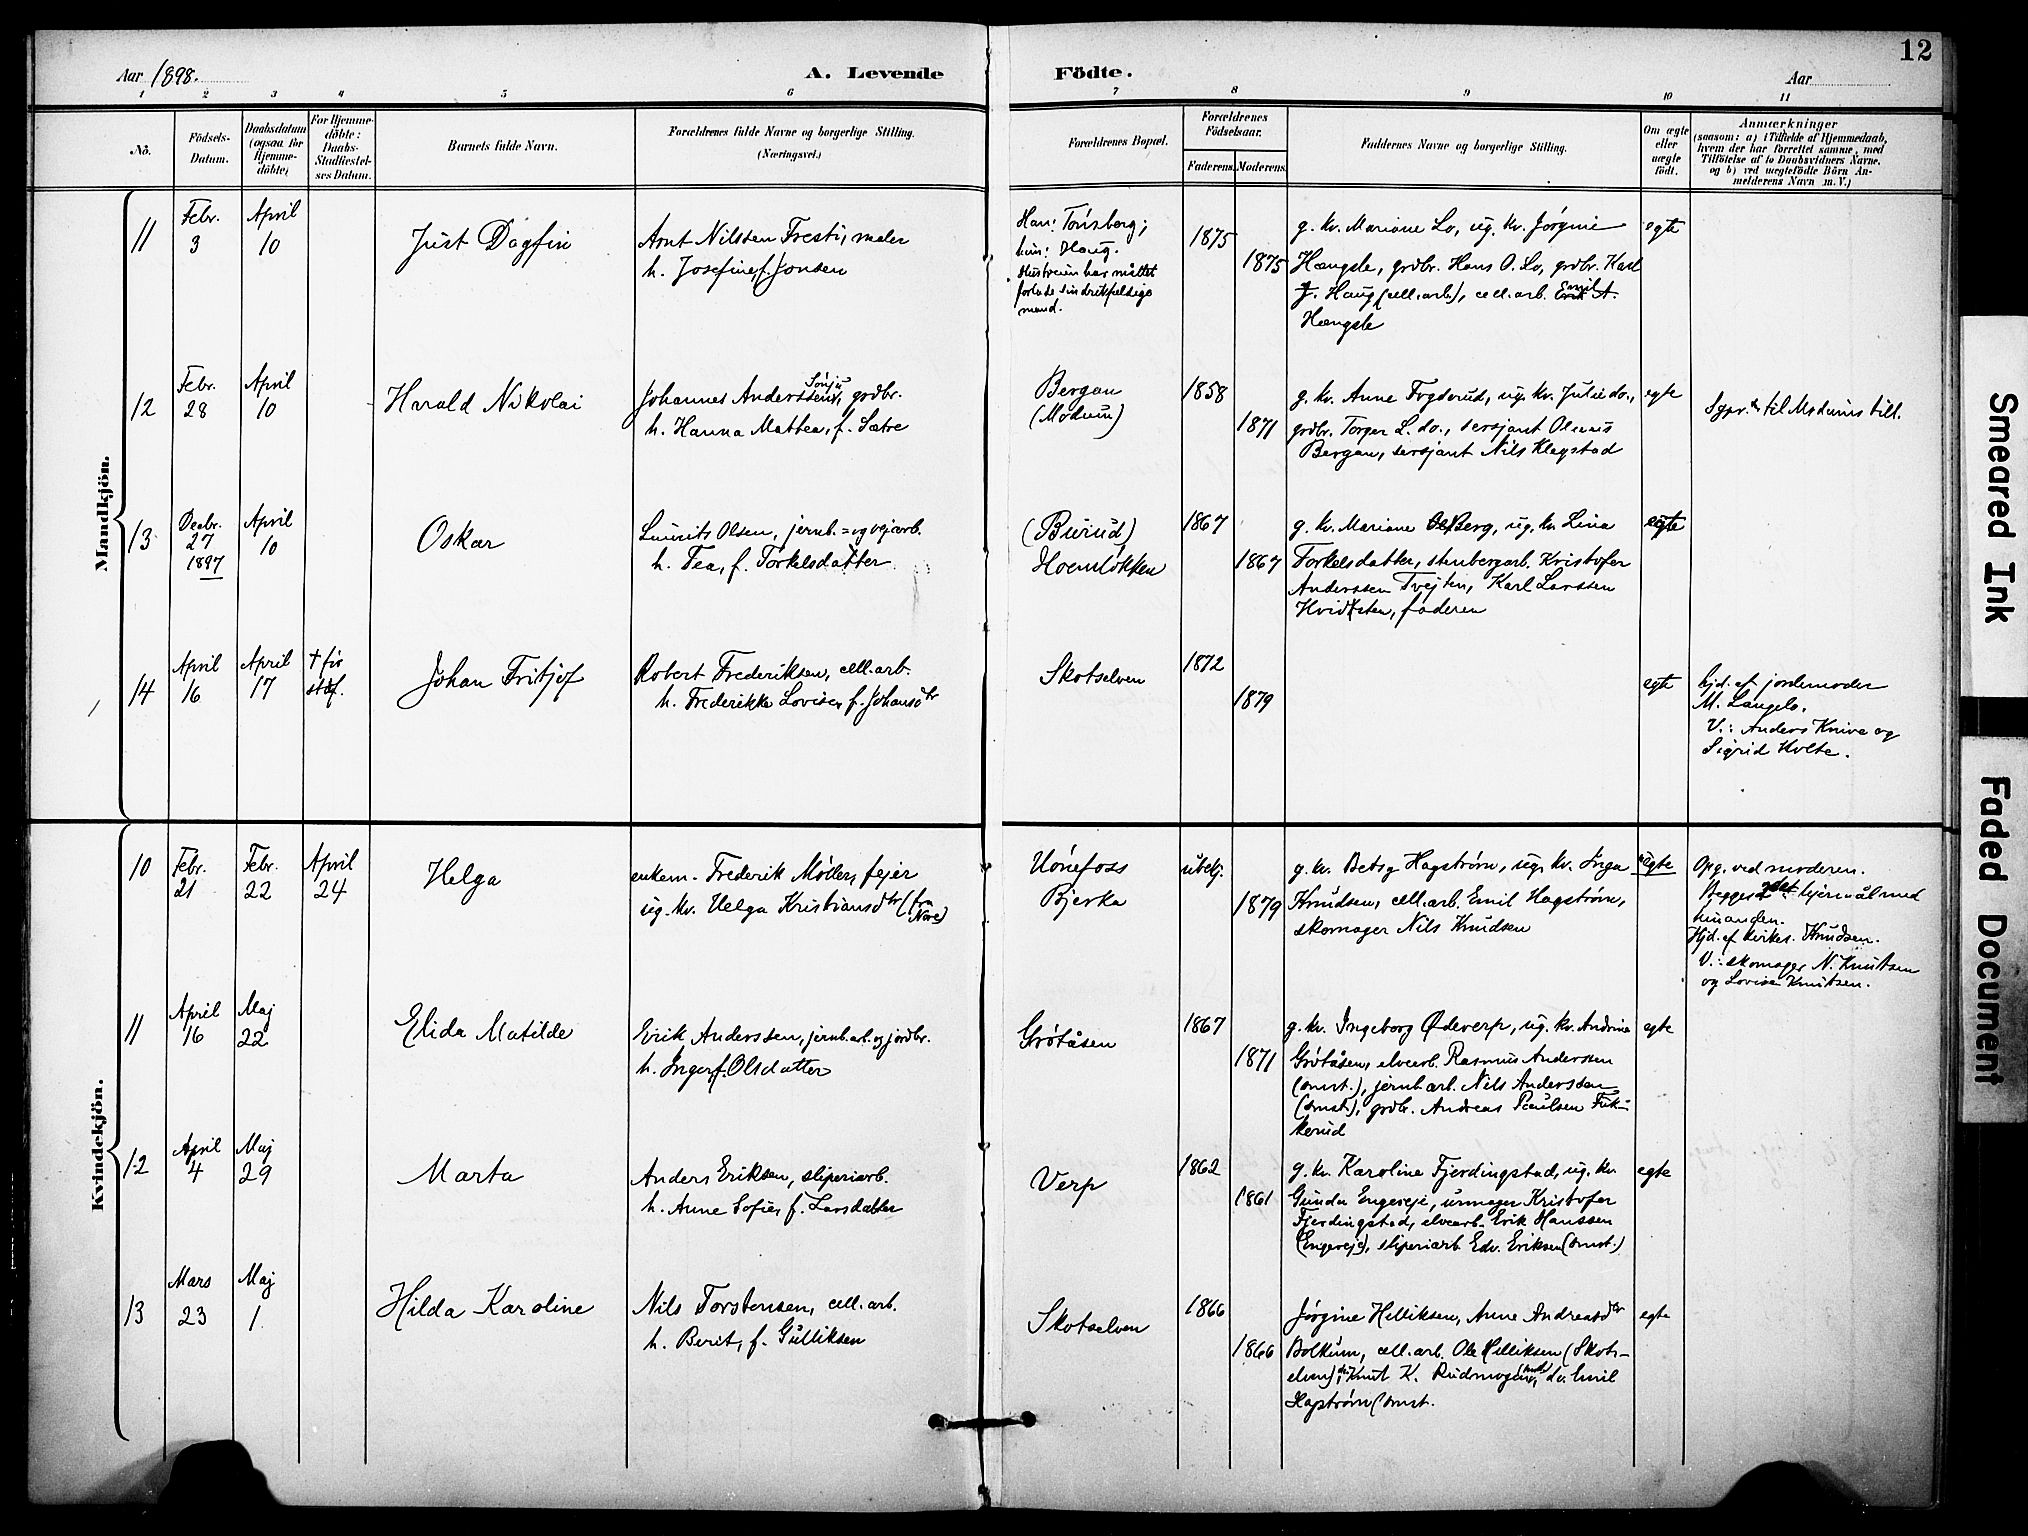 12
Aar 1898.
A. Levende Födte.
Aar
1 2 3 4 5 6 7 8 9 10 11
No.
Födsels-Datum.
Daabsdatum (ogsaa for Hjemme-döbte)
For Hjemme-döbte: Daabs-Stadfæstel-ses Datum.
Barnets fulde Navn.
Forældrenes fulde Navne og borgerlige Stilling. (Næringsvei.)
Forældrenes Bopæl.
Forældrenes Födselsaar.
Faderens. Moderens.
Faddernes Navne og borgerlige Stilling.
Om ægte eller uægte födt.
Anmærkninger
(saasom: a) i Tilfælde af Hjemmedaab,
hvem der har forrettet samme, med
Tilföielse af to Daabsvidners Navne.
og b) ved uægtefödte Börn An-
melderens Navn m. V.)
Mandkjön.
11
Febr. 3
April 10
Just Dagfin
Arnt Nilsen Fresti, maler
h. Josefine, f. Jonsen
Han: Tønsberg;
hun: Haug.
Hustruen har måttet
forlade sin drikfældige
mand.
1875
1875
g. kv. Mariane Lo, ug. kv. Jørgine
Hængsle, grdbr. Hans O. Lo, grdbr. Karl
J. Haug (cell.arb), cell.arb. Emil A.
Hængsle
egte
12
Febr. 28
April 10
Harald Nikolai
Johannes Anderssen Sønju, grdbr.
h. Hanna Mattea, f. Sætre
Bergan
(Modum)
1858
1871
g. kv. Anne Fogderud, ug. kv. Julie do.,
grdbr. Torger L. do., sersjant Olenus
Bergan, sersjant Nils Klegstad
egte
til Modums till.
13
Decbr. 27 1897
April 10
Oskar
Laurits Olsen, jernb.= og vejarb.
h. Tea, f. Torkelsdatter
(Burud)
Hoenløkken
1867
1867
g. kv. Mariane Berg, ug. kv. Lina
Torkelsdatter, stenbergarb. Kristofer
Anderssen Tvejten, Karl Larssen
Hvidsten, faderen
egte
14
April 16
April 17
† før
stdf.
Johan Fritjof
Robert Frederiksen, cell.arb.
h. Frederikke Lovise, f. Johansdtr
Skotselven
1872
1879
egte
hjd. af jordemoder
M. Langelo.
V.: Anders Knive og
Sigrid Holte.
Kvindekjön.
10
Febr. 21
Febr. 22
April 24
Helga
enkem. Frederik Møller, fejer
ug. kv. Helga Kristiansdtr (fra
Nore)
Hønefoss
Bjerka
ubekj.
1879
g. kv. Betsy Hagstrøm, ug. kv. Inga
Knudsen, cell.arb. Emil Hagstrøm,
skomager Nils Knudsen
uegte
Opg. ved moderen.
Begges lejermål med
hinanden.
Hjd. af kirkes. Knudsen.
V.: skomager N. Knutsen
og Lovise Knutsen.
11
April 16
Maj 22
Elida Matilde
Erik Anderssen, jernb.arb. og jordbr.
h. Inger, f. Olsdatter
Grøtåsen
1867
1871
g. kv. Ingeborg Ødeverp, ug. kv. Andrine
Grøtåsen, elvearb. Rasmus Anderssen
(smst.), jernb.arb. Nils Anderssen
(smst.), grdbr. Andreas Paulsen Fuk-
kerud
egte
12
April 4
Maj 29
Marta
Anders Eriksen, sliperiarb.
h. Anne Sofie, f. Larsdatter
Verp
1862
1861
g. kv. Karoline Fjerdingstad, ug. kv.
Gunda Engereje, urmager Kristofer
Fjerdingstad, elvearb. Erik Hanssen
(Engereje), sliperiarb. Edv. Eriksen (smst.)
egte
13
Mars 23
Maj 1
Hilda Karoline
Nils Torstensen, cell.arb.
h. Berit, f. Gulliksen
Skotselven
1866
1866
Jørgine Helliksen, Anne Andreasdtr
Bolkum, cell.arb. Ole Helliksen (Skots-
elven), do. Knut K. do. Emil
Hagstrøm (smst.
egte
Smeared Ink
Faded Document